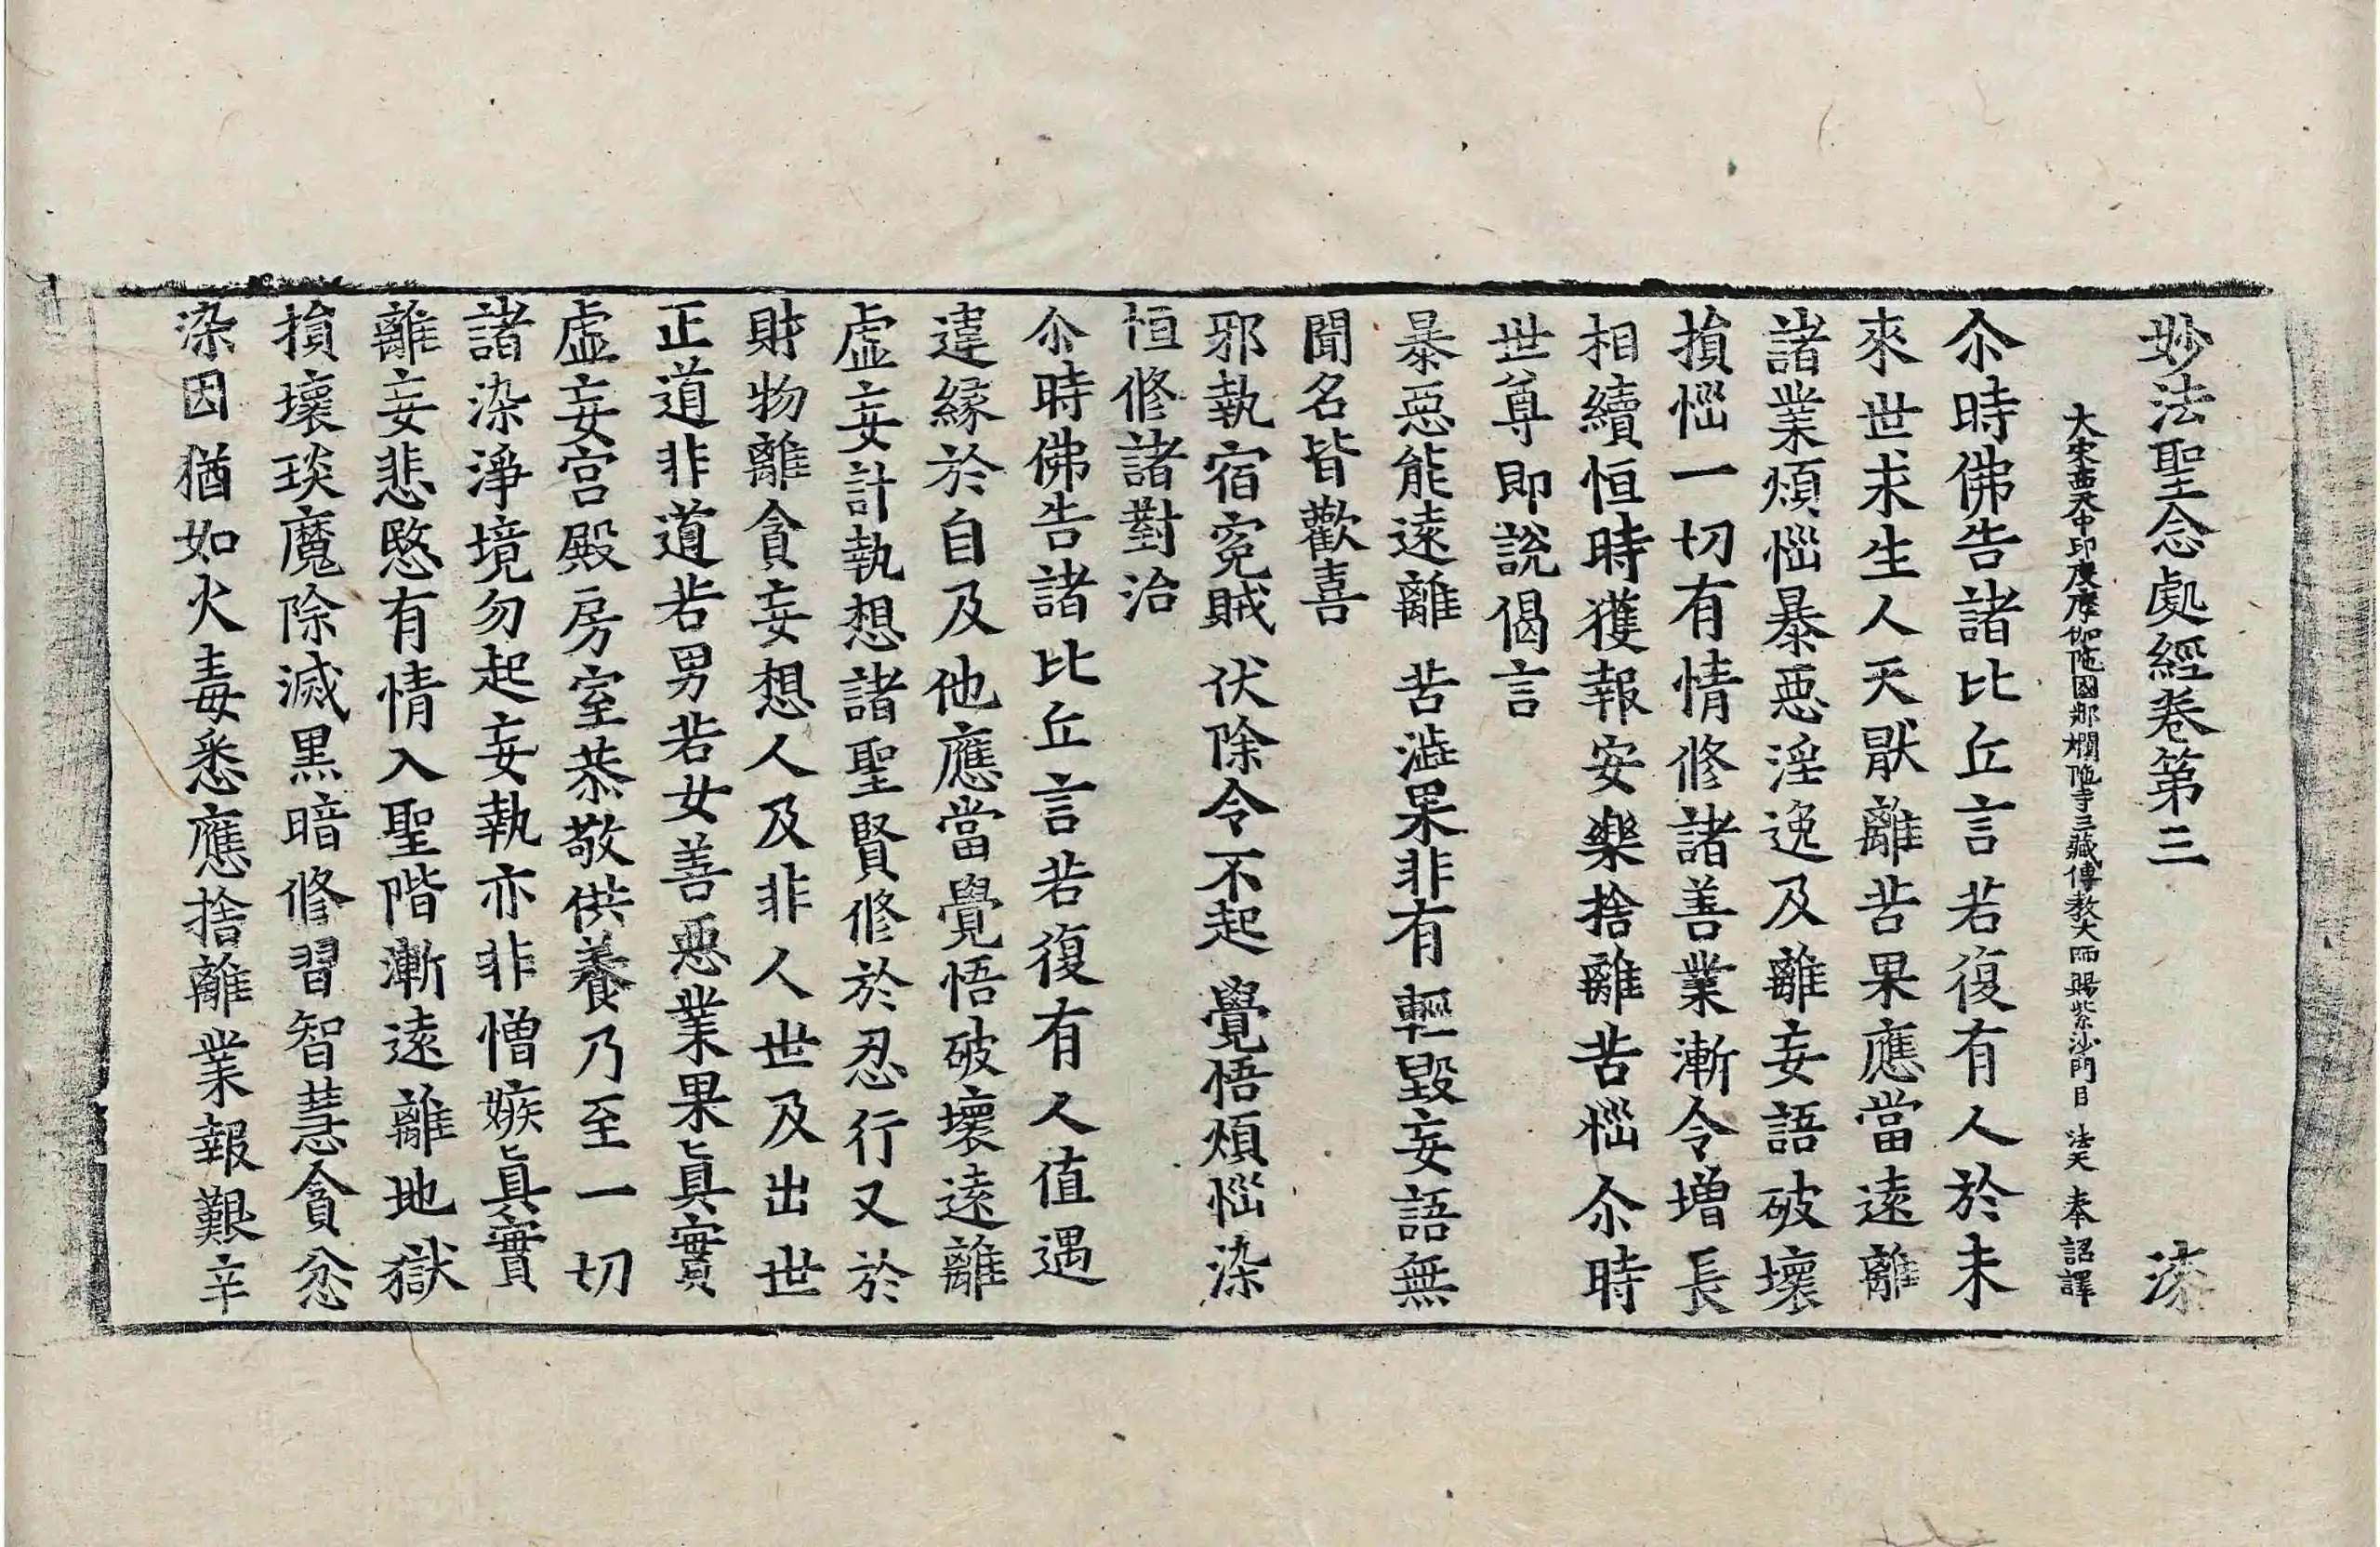 妙法聖念處經卷第三　漆
大宋中天中印度摩伽陁國那爛陁寺三藏傳教大師賜紫沙門臣 法天 奉 詔譯
尒時佛告諸比丘言若復有人於未
來世求生人天猒離苦果應當遠離
諸業煩惱暴惡淫逸及離妄語破壞
損惱一切有情修諸善業漸令增長
相續恒時獲報安樂捨離苦惱尒時
世尊即說偈言
暴惡能遠離 苦澁果非有 輕毀妄語無
聞名皆歡喜
邪執宿冤賊 伏除令不起 覺悟煩惱染
恒修諸對治
尒時佛告諸比丘言若復有人值遇
違緣於自及他應當覺悟破壞遠離
虛妄計執想諸聖賢修於忍行又於
財物離貪妄想人及非人世及出世
正道非道若男若女善惡業果眞實
虛妄宮殿房室恭敬供養乃至一切
諸染淨境勿起妄執亦非憎嫉眞實
離妄悲愍有情入聖階漸遠離地獄
損壞琰魔除滅黑暗修習智慧貪忿
染因猶如火毒悉應捨離業報艱辛